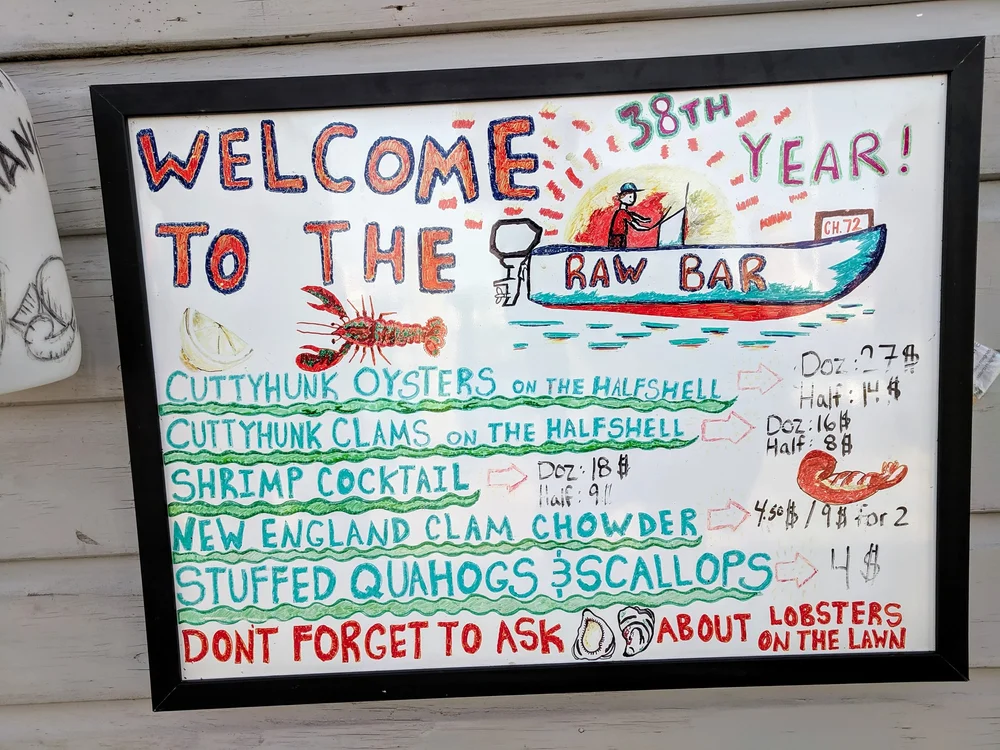 WELCOME
TO THE
38TH
YEAR!
CH.72
RAW BAR
CUTTYHUNK OYSTERS ON THE HALFSHELL
Doz: 27$
Half: 14$
CUTTYHUNK CLAMS ON THE HALFSHELL
Doz: 16$
Half: 8$
SHRIMP COCKTAIL
Doz: 18$
Half: 9
NEW ENGLAND CLAM CHOWDER
4.50$ / 9$ for 2
STUFFED QUAHOGS & SCALLOPS
4$
DON'T FORGET TO ASK ABOUT LOBSTERS
ON THE LAWN